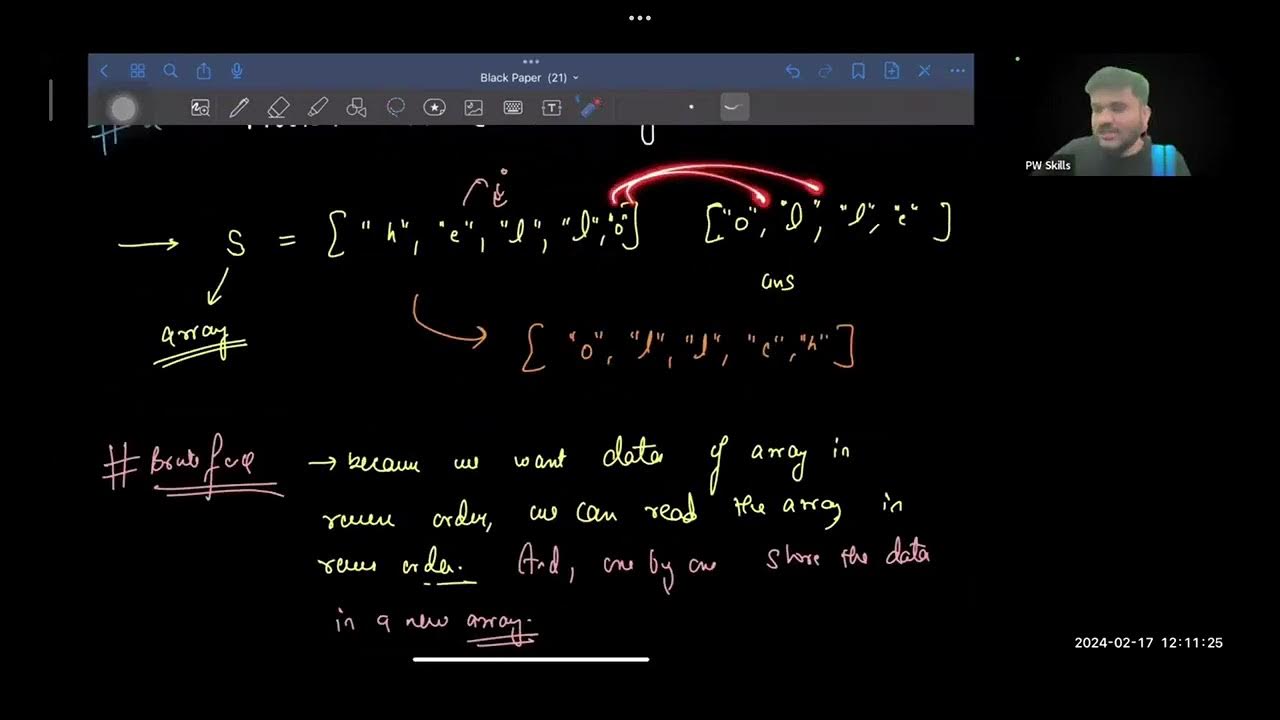 Black Paper (21)
PW Skills
S = [ "h", "e", "l", "l", "o" ] ["o", "l", "l", "e" ]
ans
array
[ "o", "l", "l", "e", "h" ]
# Brute force → because we want data of array in
reverse order, we can read the array in
reverse order. And, one by one store the data
in a new array.
2024-02-17 12:11:25